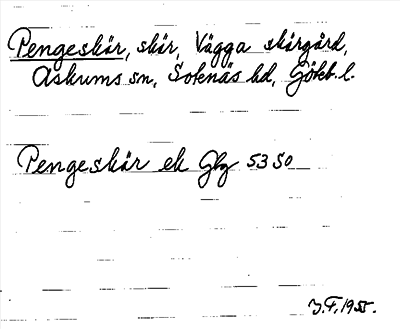 Pengeskär, skär, Vägga skärgård,
Askums sn, Sotenäs hd, Göteb. l.
Pengeskär ek Gbg 53 SO
J.F. 1955.